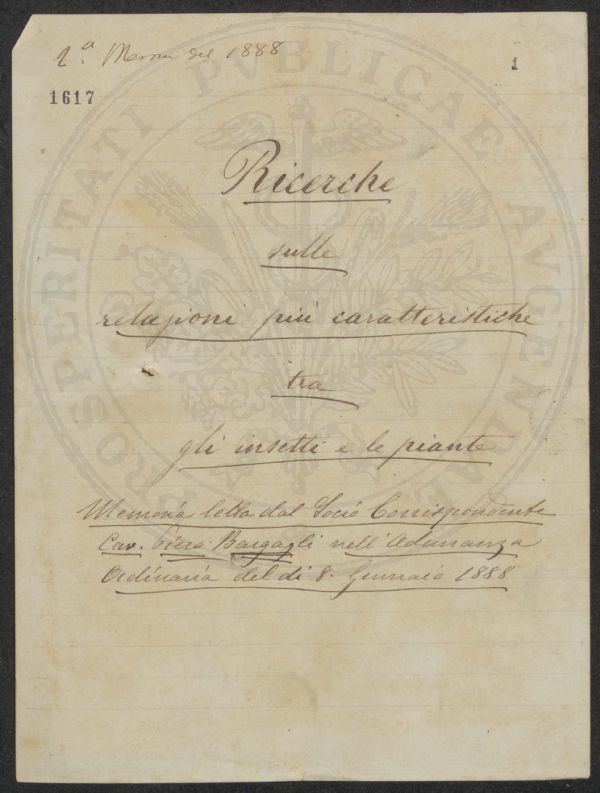 2.ª Memoria del 1888
1
1617
Ricerche
sulle
relazioni più caratteristiche
tra
gli insetti e le piante
Memoria letta dal Socio Corrispondente
Cav. Piero Bargagli nell'Adunanza
Ordinaria del dì 8. Gennaio 1888
PROSPERITATI PVBLICAE AVGENDAE